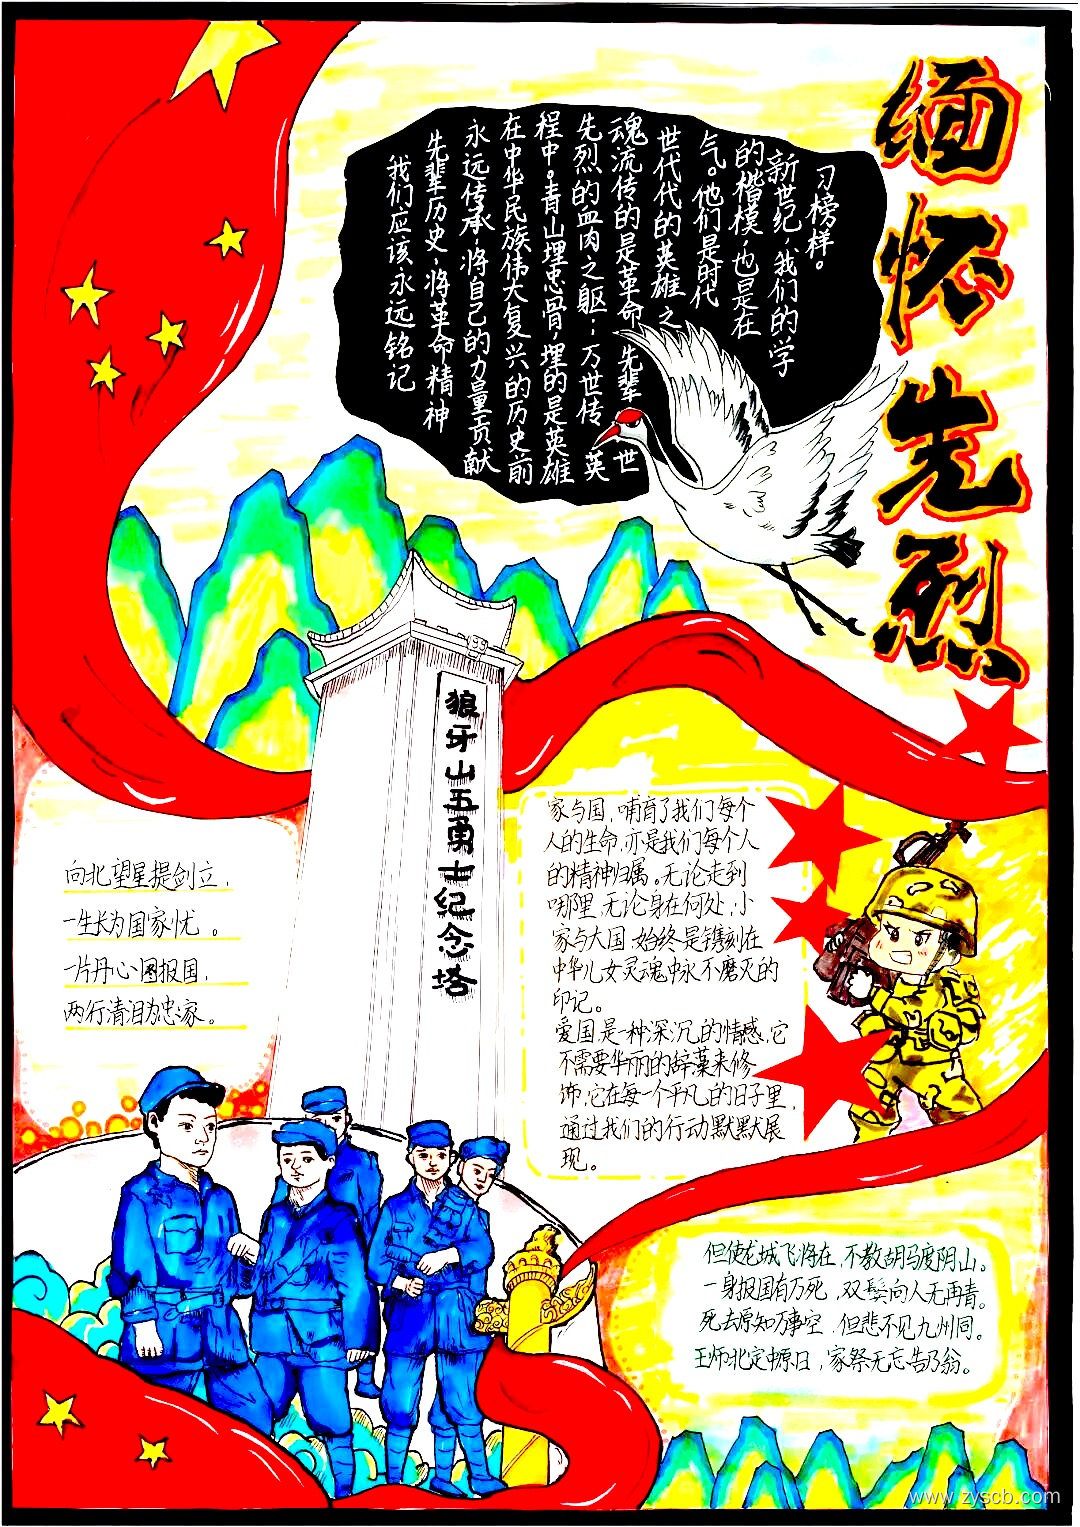 缅怀先烈
我们应该永远铭记
先辈历史，将革命精神
永远传承，将自己的力量贡献
在中华民族伟大复兴的历史前
程中。青山埋忠骨，埋的是英雄
先烈的血肉之躯；万世传英
魂流传的是革命先辈世
世代代的英雄之
气。他们是时代
的楷模，也是在
新世纪，我们的学
习榜样。
狼牙山五勇士纪念塔
向北望星提剑立，
一生长为国家忧。
一片丹心图报国，
两行清泪为忠家。
家与国，哺育了我们每个
人的生命，亦是我们每个人
的精神归属。无论走到
哪里，无论身在何处，小
家与大国，始终是镌刻在
中华儿女灵魂中永不磨灭的
印记。
爱国，是一种深沉的情感，它
不需要华丽的辞藻来修
饰，它在每一个平凡的日子里，
通过我们的行动默默展
现。
但使龙城飞将在，不教胡马度阴山。
一身报国有万死，双鬓向人无再青。
死去原知万事空，但悲不见九州同。
王师北定中原日，家祭无忘告乃翁。
www.zyscb.com